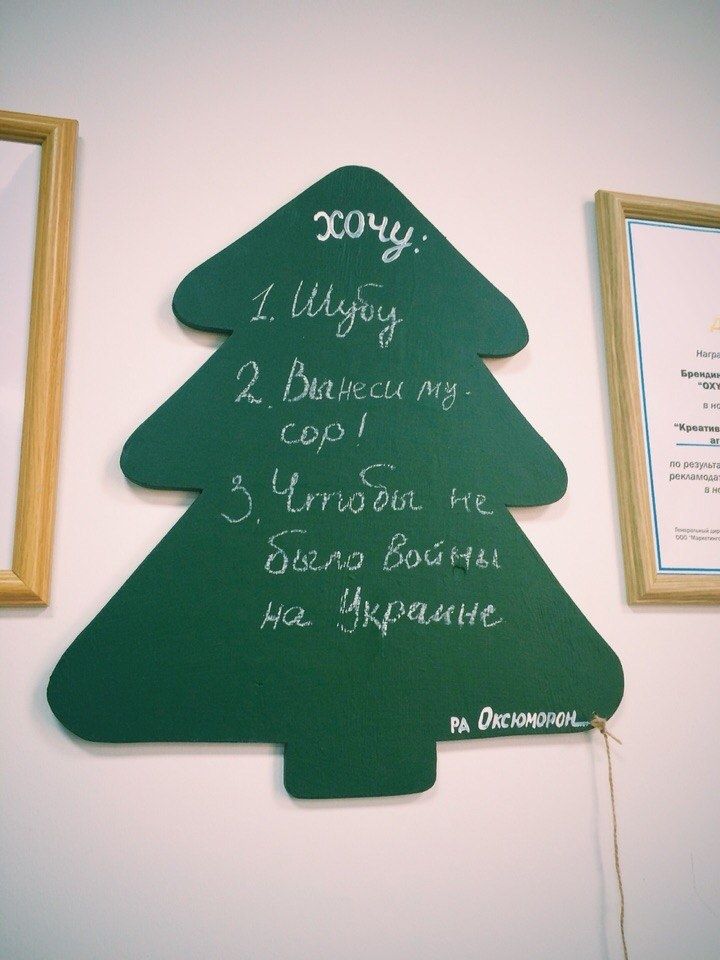 хочу:
1. Шубу
2. Вынеси му-
сор!
3. Чтобы не
было войны
на Украине
РА Оксюморон
Брендин
"OXY
в но
"Креатив
аг
по результа
рекламодат
в но
Генеральный дир
ООО "Маркетинго